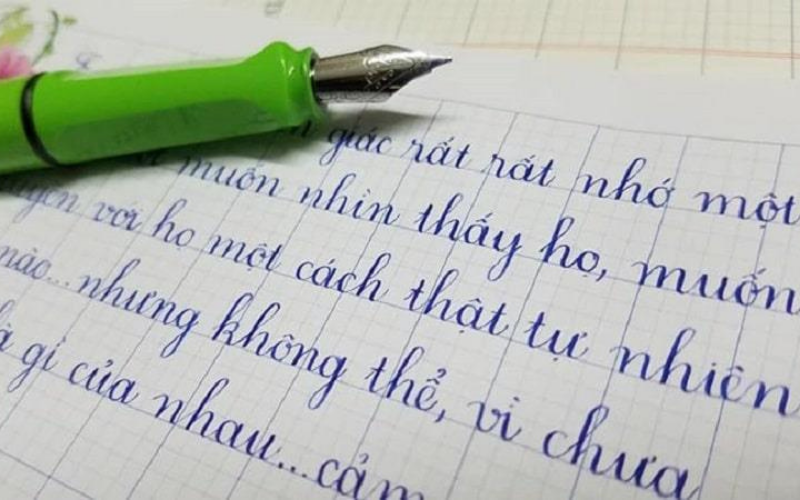 giác rất rất nhớ một
muốn nhìn thấy họ, muốn
với họ một cách thật tự nhiên
nào... nhưng không thể, vì chưa
là gì của nhau... cảm